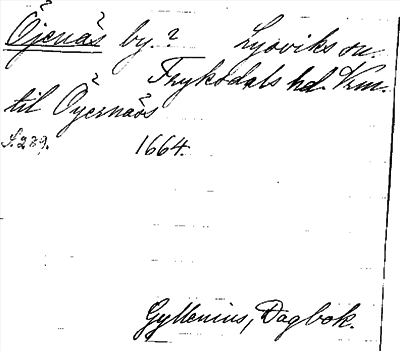 Öjenäs by? Lysviks sn.
Fryksdals hd. Vrm.
til Öyernääs
S. 289. 1664.
Gyllenius, Dagbok.